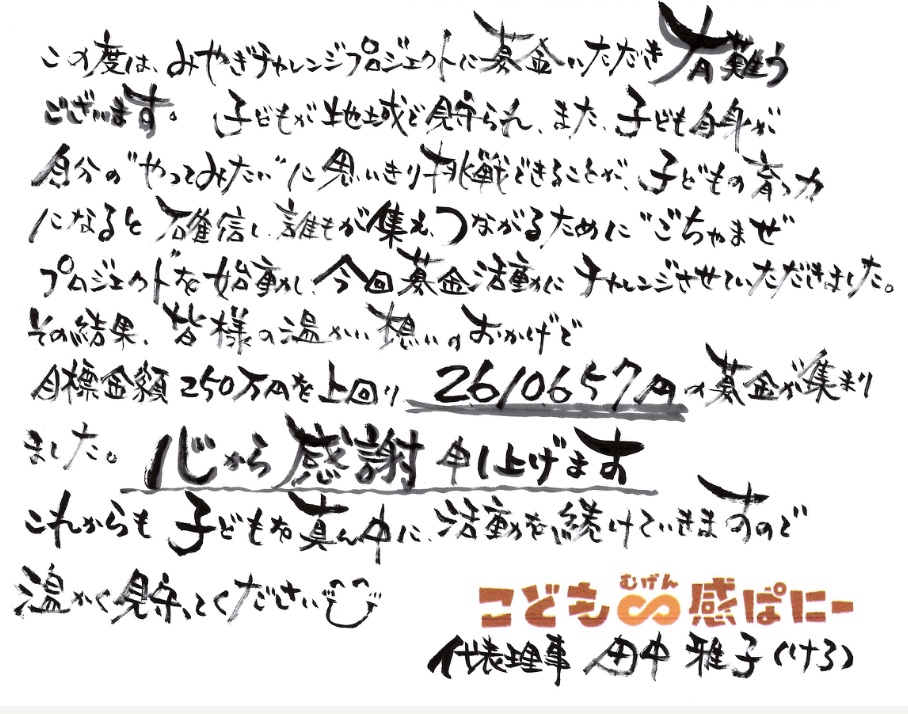 この度は、みやぎチャレンジプロジェクトに募金いただき有難う
ございます。 子どもが地域で見守られ、また、子ども自身が
自分の"やってみたい"に思いきり挑戦できることが、子どもの育つ力
になると確信し、誰もが集え、つながるために"ごちゃまぜ"
プロジェクトを始動し、今回募金活動にチャレンジさせていただきました。
その結果、皆様の温かい想いのおかげで
目標金額250万円を上回り 2610657円の募金が集まり
ました。心から感謝申し上げます
これからも子どもを真ん中に、活動を続けていきますので
温かく見守ってください
むげん
こども∞感ぱにー
代表理事 田中 雅子(けろ)